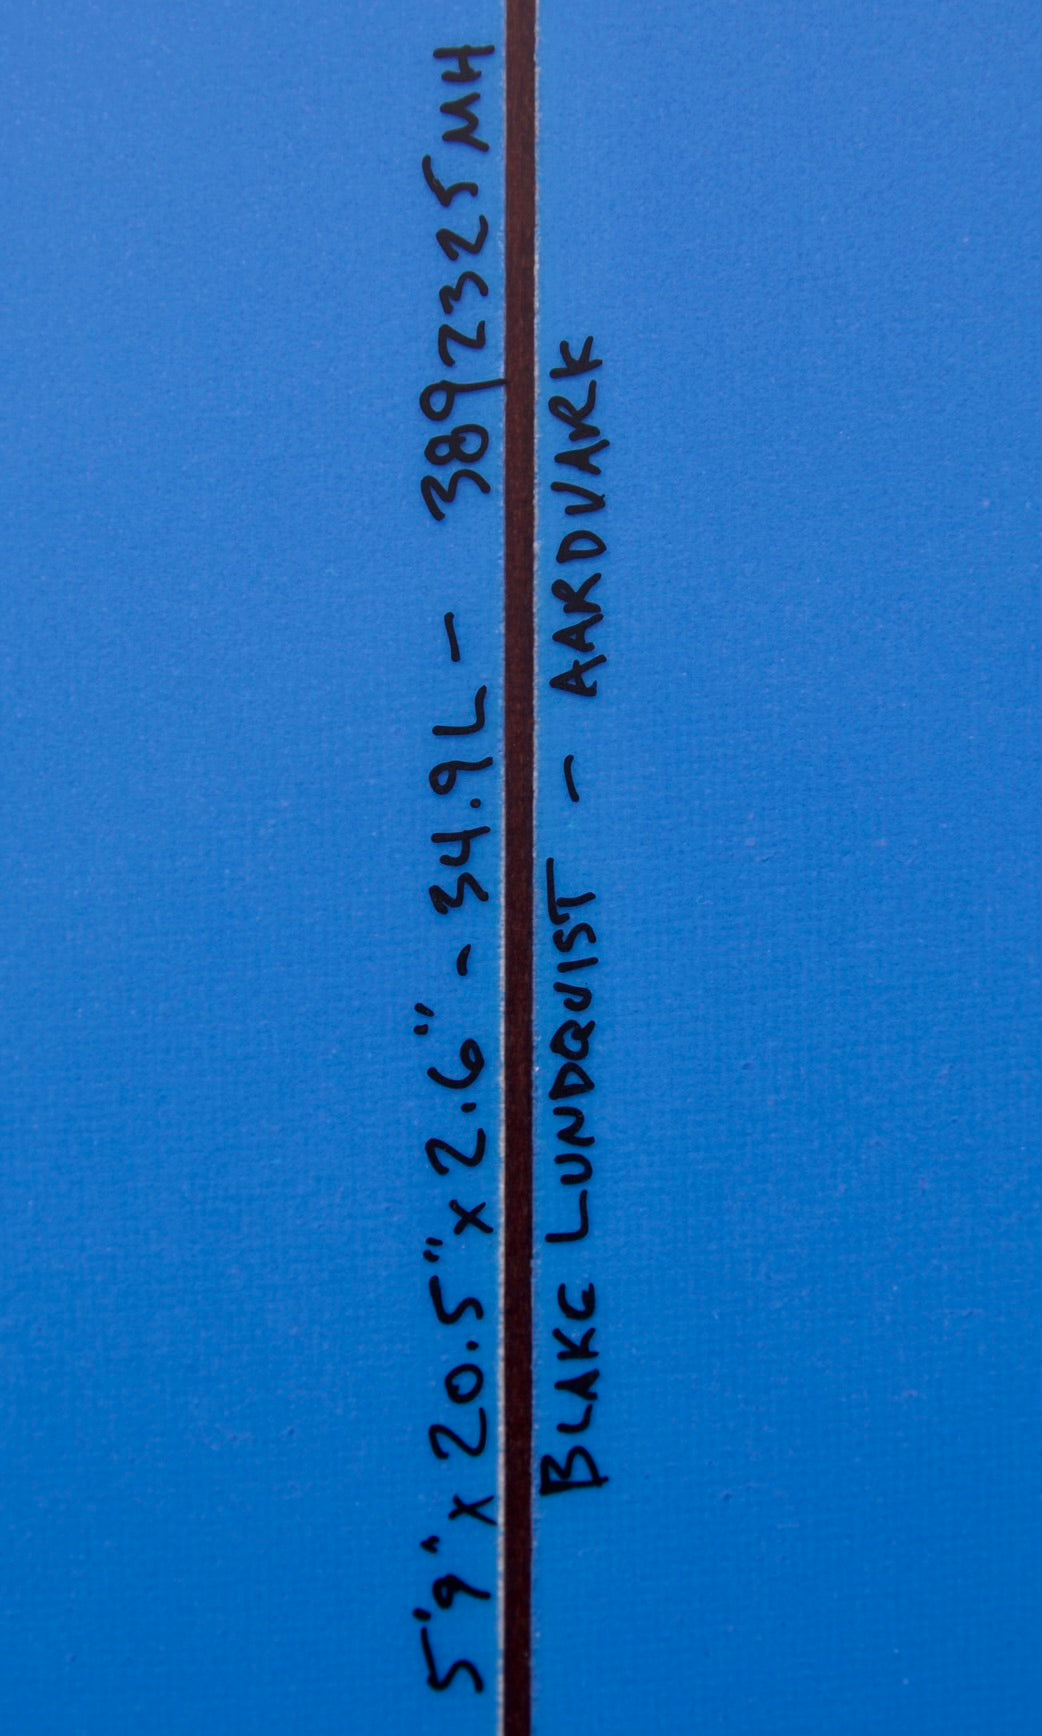 5'9" x 20.5" x 2.6" - 34.9L - 3892325MH
BLAKE LUNDQUIST - AARDVARK